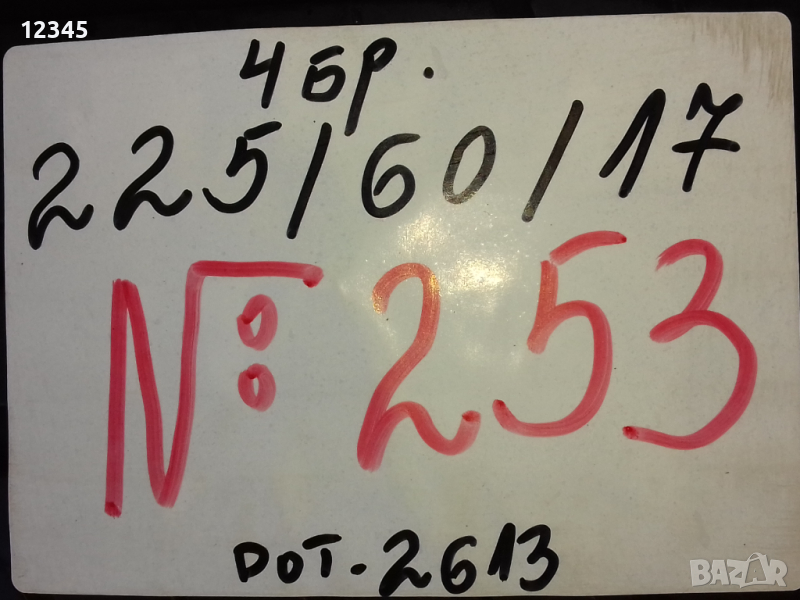 12345
4 бр.
225/60/17
№: 253
DOT-2613
BAZAR